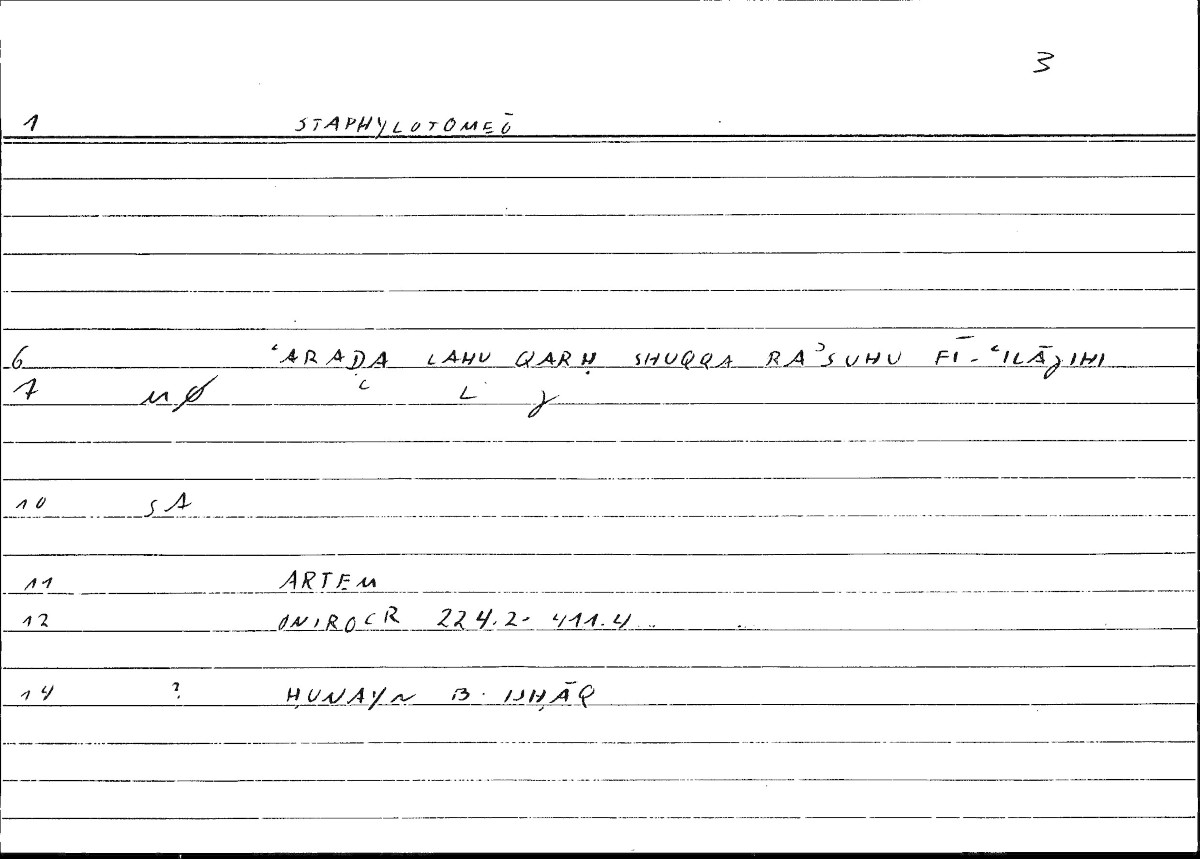 3
1 STAPHYLOTOMEŌ
6 ʿARAḌA LAHU QARḤ SHUQQA RAʾSUHU FĪ-ʿILĀǧIHI
7
10 SA
11 ARTEM
12 ONIROCR 224.2- 411.4
14 ? ḤUNAYN B. ISḤĀQ